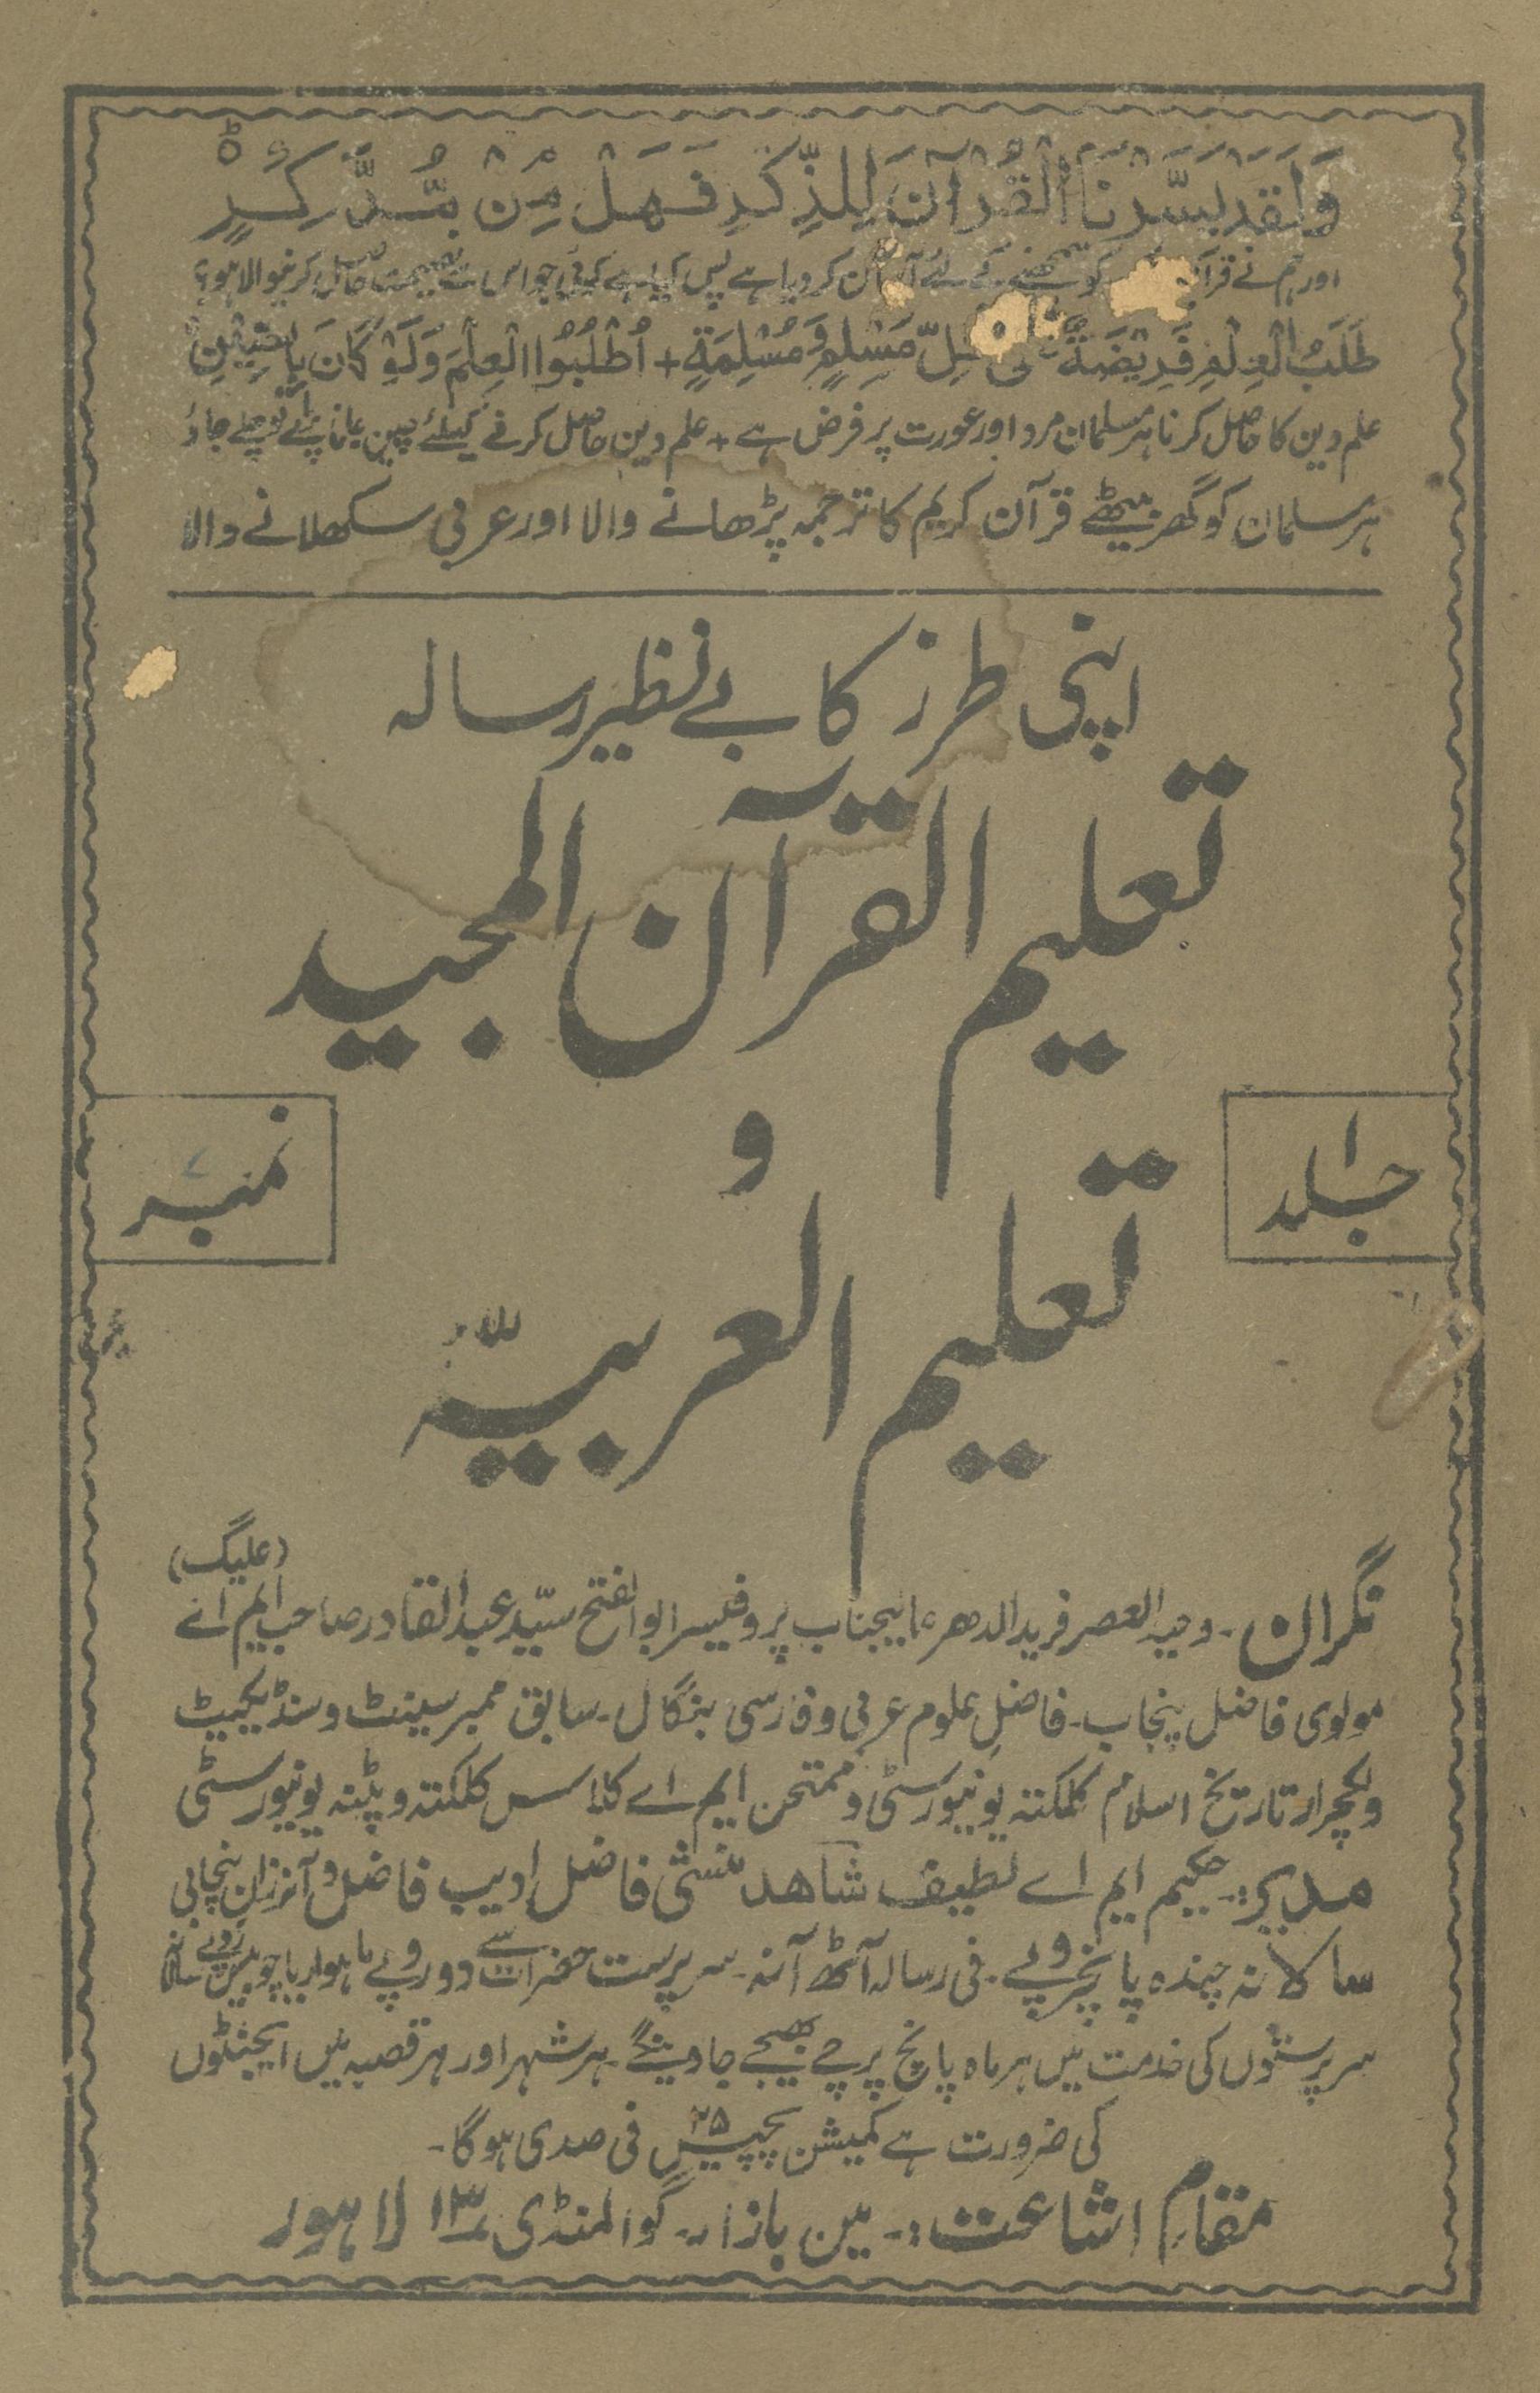 وَلَقَدْ يَسَّرْنَا الْقُرْآنَ لِلذِّكْرِ فَهَلْ مِنْ مُّدَّكِرٍ ط
اور ہم نے قرآن کو سمجھنے کے لئے آسان کر دیا ہے پس کیا ہے کوئی جو اس سے نصیحت حاصل کرنیوالا ہو؟
طَلَبُ الْعِلْمِ فَرِيْضَةٌ مُسْلِمٍ وَّمُسْلِمَةٍ + اُطْلُبُوا الْعِلْمَ وَلَوْ كَانَ بِالصِّيْنِ
علم دین کا حاصل کرنا ہر مسلمان مرد اور عورت پر فرض ہے + علم دین حاصل کرنے کیلئے چین جانا پڑے تو چلے جاؤ
ہر مسلمان کو گھر بیٹھے قرآن کریم کا ترجمہ پڑھانے والا اور عربی سکھلانے والا
اپنی طرز کا بے نظیر رسالہ
تعلیم القرآن المجید
و
جلد ۱
نمبر ۷
تعلیم العربیّہ
نگران - وحید العصر فرید الدھر عالیجناب پروفیسر ابو الفتح سیّد عبد القادر صاحب ایم اے (علیگ)
مولوی فاضل پنجاب - فاضلِ علوم عربی و فارسی بنگال - سابق ممبر سینٹ و سنڈیکیٹ
و لیکچرار تاریخ اسلام کلکتہ یونیورسٹی و ممتحن ایم اے کلاسس کلکتہ و پٹنہ یونیورسٹی
مدیر :- حکیم ایم اے لطیف شاھد منشی فاضل ادیب فاضل و آنرز ان پنجابی
سالانہ چندہ پانچ روپے - فی رسالہ آٹھ آنہ - سرپرست حضرات سے دو روپے ماہوار یا چوبیس روپے سالانہ
سرپرستوں کی خدمت میں ہر ماہ پانچ پرچے بھیجے جاوینگے - ہر شہر اور ہر قصبہ میں ایجنٹوں
کی ضرورت ہے کمیشن پچیس ۲۵ فی صدی ہوگا -
مقام اشاعت :- مین بازار - گوالمنڈی ۱۳ لاہور